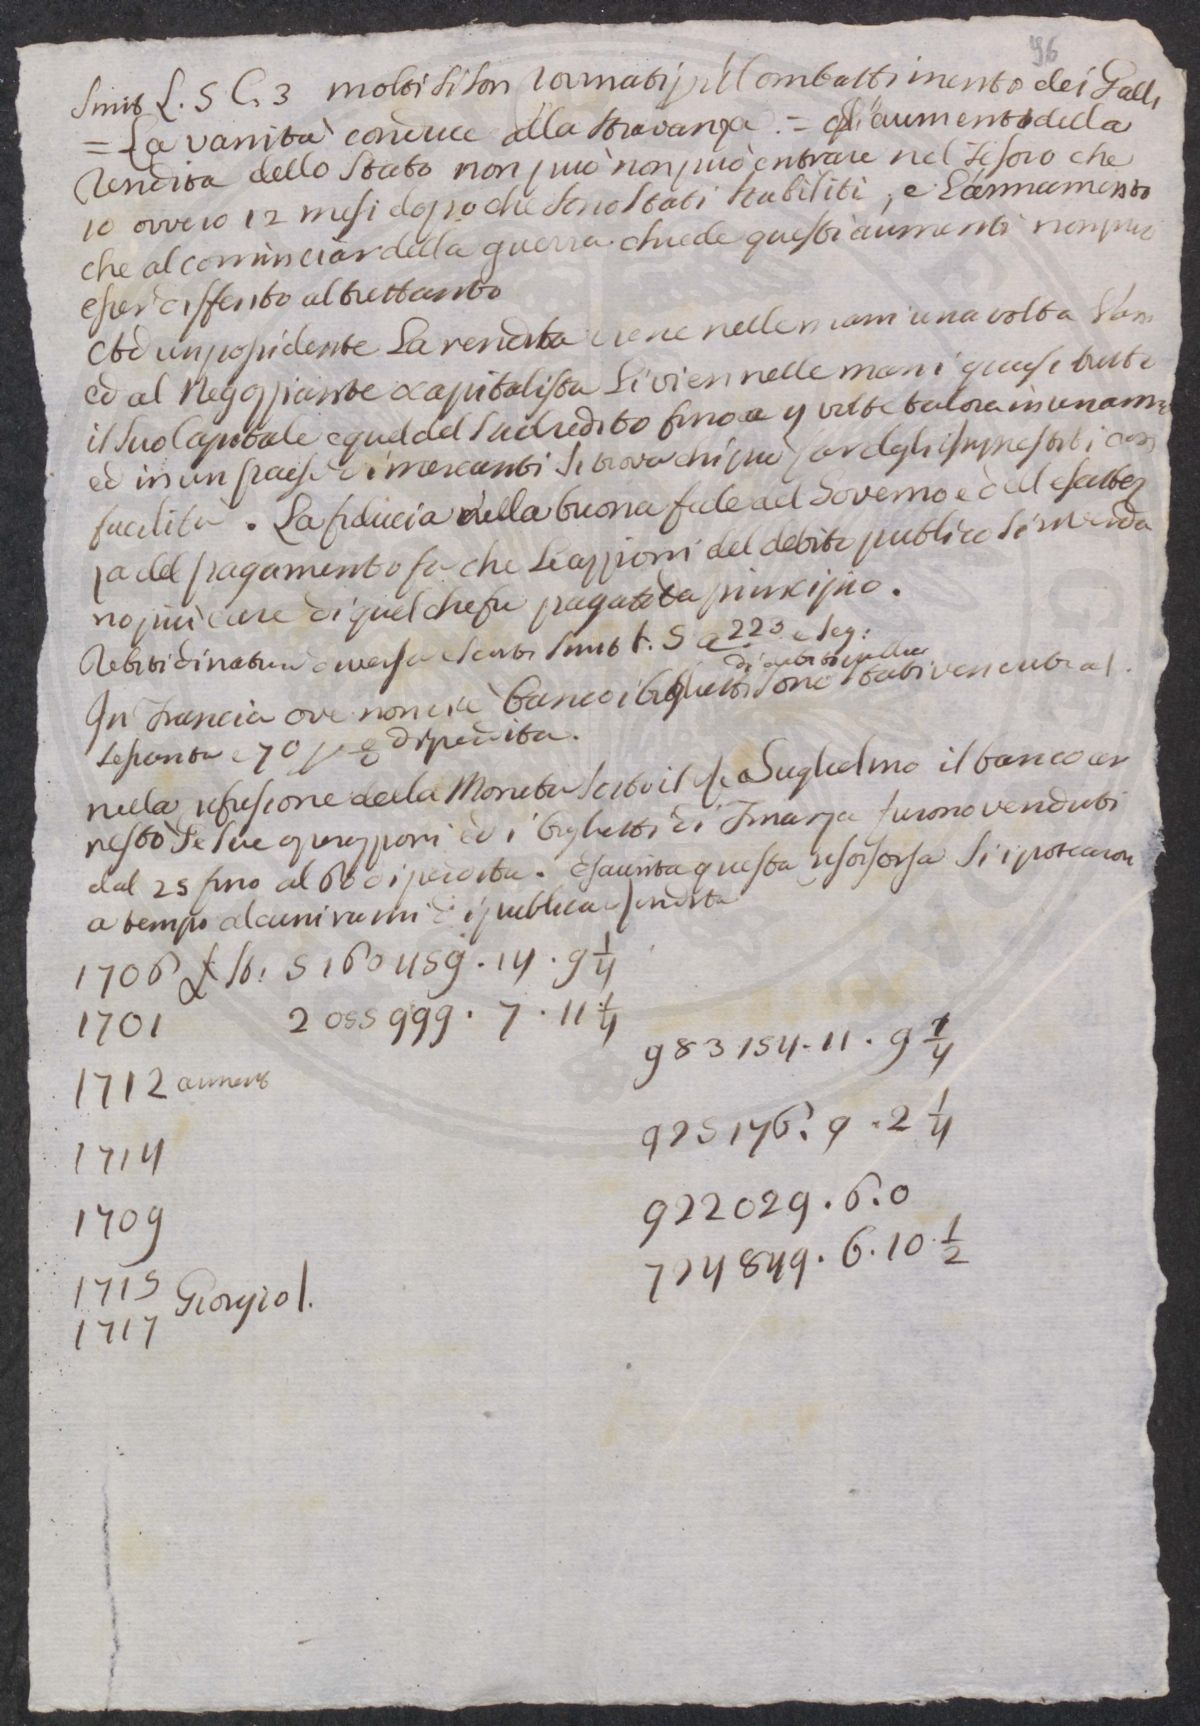 96
Smit L. 5 C. 3 molti si son rovinati pel Combattimento dei Galli
= La vanità conduce alla stravanza. = gli aumenti della
rendita dello Stato non può non può entrare nel tesoro che
10 ovvero 12 mesi dopo che sono stati stabiliti, e l'armamento
che al cominciar della guerra chiede questi aumenti non può
esser differito altrettanto
Ad un possidente la rendita viene nelle mani una volta l'an
ed al Negoziante Capitalista li vien nelle mani quasi tutto
il suo Capitale e quel del suo credito fino a 4 volte talora in un anno
ed in un paese di mercanti si trova chi può far degli imprestiti con
facilità. La fiducia nella buona fede del Governo e dell'esattez
za del pagamento fa che le azzioni del debito publico si venda
no più care di quel che fu pagato da principio.
Debiti di natura diversa Smit t. 5 a 223 e seg:
di antisipazione
In Francia ove non vi è banco i biglietti sono stati venduti al
sessanta e 70 p % di perdita.
nella rifusione della Moneta sotto il Re Guglielmo il banco ar
restò le sue operazzioni ed i biglietti di Finanza furono venduti
dal 25 fino al 60 di perdita. Esaurita questa risorsa si ipotecaron
a tempo alcuni rami di publica rendita
1706 £ St. 5160459 . 14 . 9 1/4
1701 2055999 . 7 . 11 1/4
983154 . 11 . 9 1/4
1712 aument
1714 925176 . 9 . 2 1/4
1709 922029 . 6 . 0
1715 Giorgio I. 724849 . 6 . 10 1/2
1717